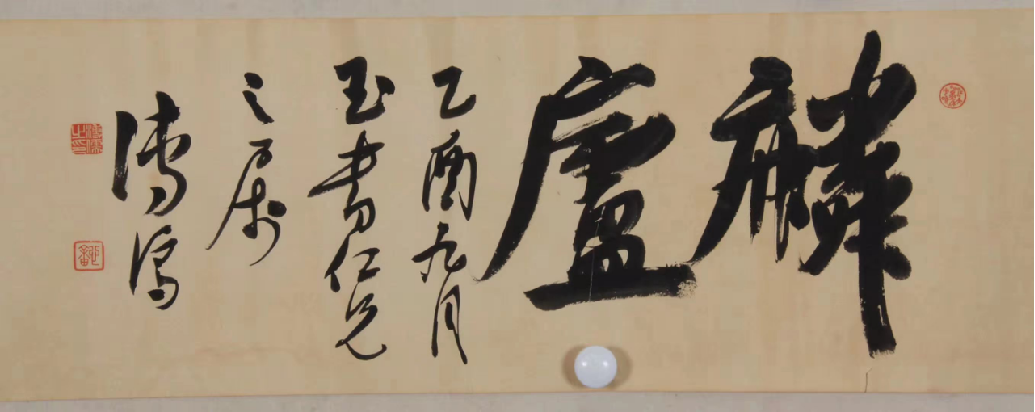 麟廬
乙酉九月
玉書仁兄
之屬